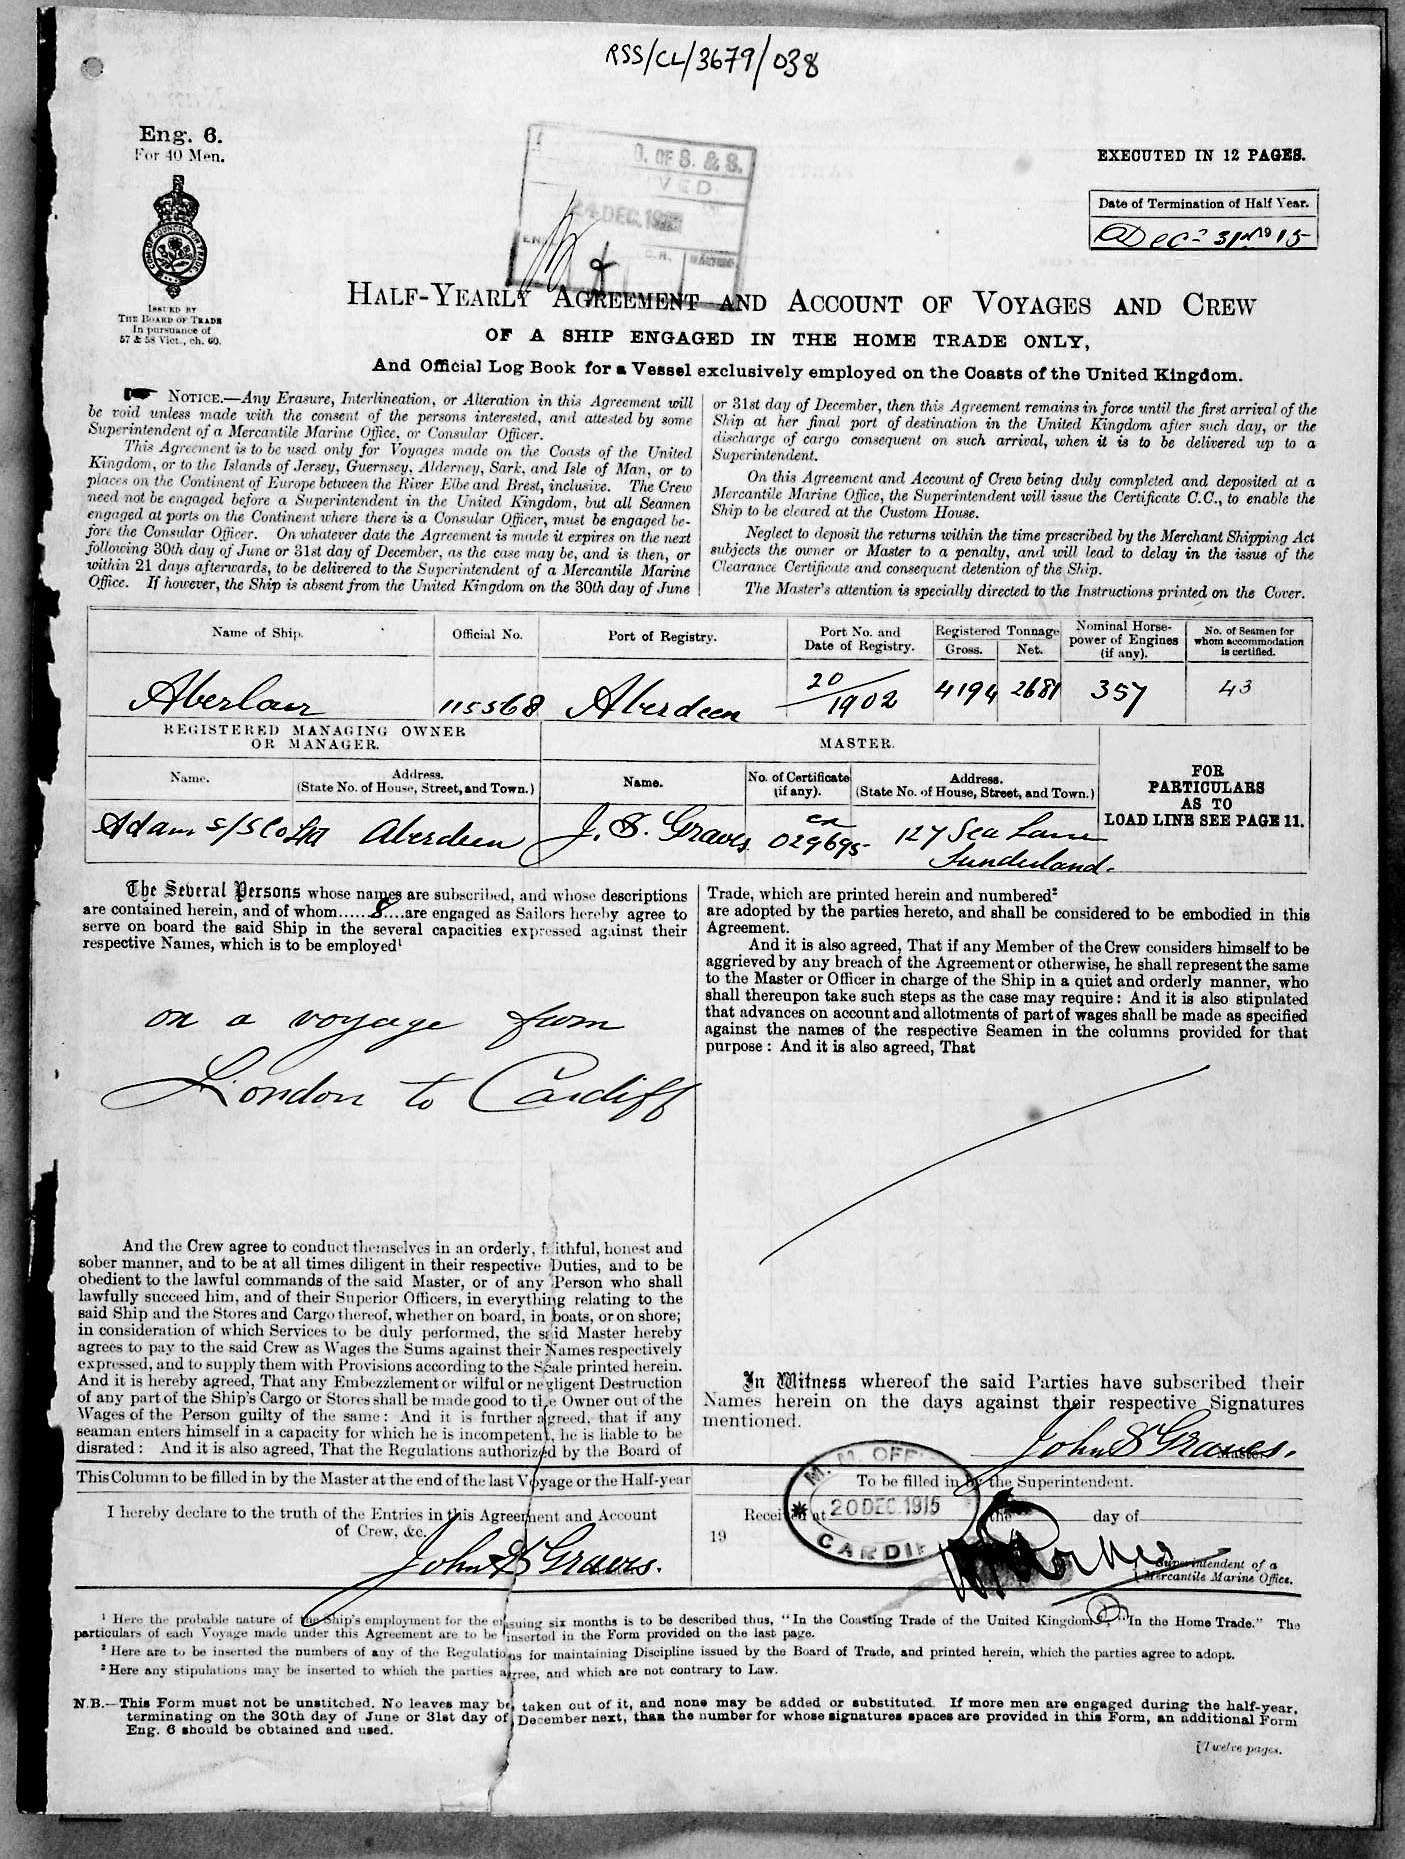 RSS/CL/3679/038
Eng. 6.
For 40 Men.
EXECUTED IN 12 PAGES.
O. OF S. & S.
24 DEC. 19
Date of Termination of Half Year.
Dec 31 1915
ISSUED BY
THE BOARD OF TRADE
In pursuance of
57 & 58 Vict., ch. 60.
HALF-YEARLY AGREEMENT AND ACCOUNT OF VOYAGES AND CREW
OF A SHIP ENGAGED IN THE HOME TRADE ONLY,
And Official Log Book for a Vessel exclusively employed on the Coasts of the United Kingdom.
NOTICE.—Any Erasure, Interlineation, or Alteration in this Agreement will
be void unless made with the consent of the persons interested, and attested by some
Superintendent of a Mercantile Marine Office, or Consular Officer.
This Agreement is to be used only for Voyages made on the Coasts of the United
Kingdom, or to the Islands of Jersey, Guernsey, Alderney, Sark, and Isle of Man, or to
places on the Continent of Europe between the River Elbe and Brest, inclusive. The Crew
need not be engaged before a Superintendent in the United Kingdom, but all Seamen
engaged at ports on the Continent where there is a Consular Officer, must be engaged be-
fore the Consular Officer. On whatever date the Agreement is made it expires on the next
following 30th day of June or 31st day of December, as the case may be, and is then, or
within 21 days afterwards, to be delivered to the Superintendent of a Mercantile Marine
Office. If however, the Ship is absent from the United Kingdom on the 30th day of June
or 31st day of December, then this Agreement remains in force until the first arrival of the
Ship at her final port of destination in the United Kingdom after such day, or the
discharge of cargo consequent on such arrival, when it is to be delivered up to a
Superintendent.
On this Agreement and Account of Crew being duly completed and deposited at a
Mercantile Marine Office, the Superintendent will issue the Certificate C.C., to enable the
Ship to be cleared at the Custom House.
Neglect to deposit the returns within the time prescribed by the Merchant Shipping Act
subjects the owner or Master to a penalty, and will lead to delay in the issue of the
Clearance Certificate and consequent detention of the Ship.
The Master's attention is specially directed to the Instructions printed on the Cover.
Name of Ship. Official No. Port of Registry. Port No. and Date of Registry. Registered Tonnage Gross. Net. Nominal Horse-power of Engines (if any). No. of Seamen for whom accommodation is certified.
Aberlour 115568 Aberdeen 20/1902 4194 2681 357 43
REGISTERED MANAGING OWNER
OR MANAGER.
MASTER.
Name. Address. (State No. of House, Street, and Town.) Name. No. of Certificate (if any). Address. (State No. of House, Street, and Town.)
FOR
PARTICULARS
AS TO
LOAD LINE SEE PAGE 11.
Adam S/S Co Ltd Aberdeen J. S. Graves 029695 127 Sea Lane
Sunderland.
The Several Persons whose names are subscribed, and whose descriptions
are contained herein, and of whom......8....are engaged as Sailors hereby agree to
serve on board the said Ship in the several capacities expressed against their
respective Names, which is to be employed¹
on a voyage from
London to Cardiff
And the Crew agree to conduct themselves in an orderly, faithful, honest and
sober manner, and to be at all times diligent in their respective Duties, and to be
obedient to the lawful commands of the said Master, or of any Person who shall
lawfully succeed him, and of their Superior Officers, in everything relating to the
said Ship and the Stores and Cargo thereof, whether on board, in boats, or on shore;
in consideration of which Services to be duly performed, the said Master hereby
agrees to pay to the said Crew as Wages the Sums against their Names respectively
expressed, and to supply them with Provisions according to the Scale printed herein.
And it is hereby agreed, That any Embezzlement or wilful or negligent Destruction
of any part of the Ship's Cargo or Stores shall be made good to the Owner out of the
Wages of the Person guilty of the same: And it is further agreed, that if any
seaman enters himself in a capacity for which he is incompetent, he is liable to be
disrated: And it is also agreed, That the Regulations authorized by the Board of
Trade, which are printed herein and numbered²
are adopted by the parties hereto, and shall be considered to be embodied in this
Agreement.
And it is also agreed, That if any Member of the Crew considers himself to be
aggrieved by any breach of the Agreement or otherwise, he shall represent the same
to the Master or Officer in charge of the Ship in a quiet and orderly manner, who
shall thereupon take such steps as the case may require: And it is also stipulated
that advances on account and allotments of part of wages shall be made as specified
against the names of the respective Seamen in the columns provided for that
purpose: And it is also agreed, That
In Witness whereof the said Parties have subscribed their
Names herein on the days against their respective Signatures
mentioned.
John S Graves. Master.
This Column to be filled in by the Master at the end of the last Voyage or the Half-year
I hereby declare to the truth of the Entries in this Agreement and Account
of Crew, &c.
John S Graves.
To be filled in by the Superintendent.
Received at the day of
19
M. M. OFF
20 DEC. 1915
CARDI
Superintendent of a
Mercantile Marine Office.
¹ Here the probable nature of the Ship's employment for the ensuing six months is to be described thus, "In the Coasting Trade of the United Kingdom", "In the Home Trade." The
particulars of each Voyage made under this Agreement are to be inserted in the Form provided on the last page.
² Here are to be inserted the numbers of any of the Regulations for maintaining Discipline issued by the Board of Trade, and printed herein, which the parties agree to adopt.
³ Here any stipulations may be inserted to which the parties agree, and which are not contrary to Law.
N.B.—This Form must not be unstitched. No leaves may be taken out of it, and none may be added or substituted. If more men are engaged during the half-year,
terminating on the 30th day of June or 31st day of December next, than the number for whose signatures spaces are provided in this Form, an additional Form
Eng. 6 should be obtained and used.
[Twelve pages.